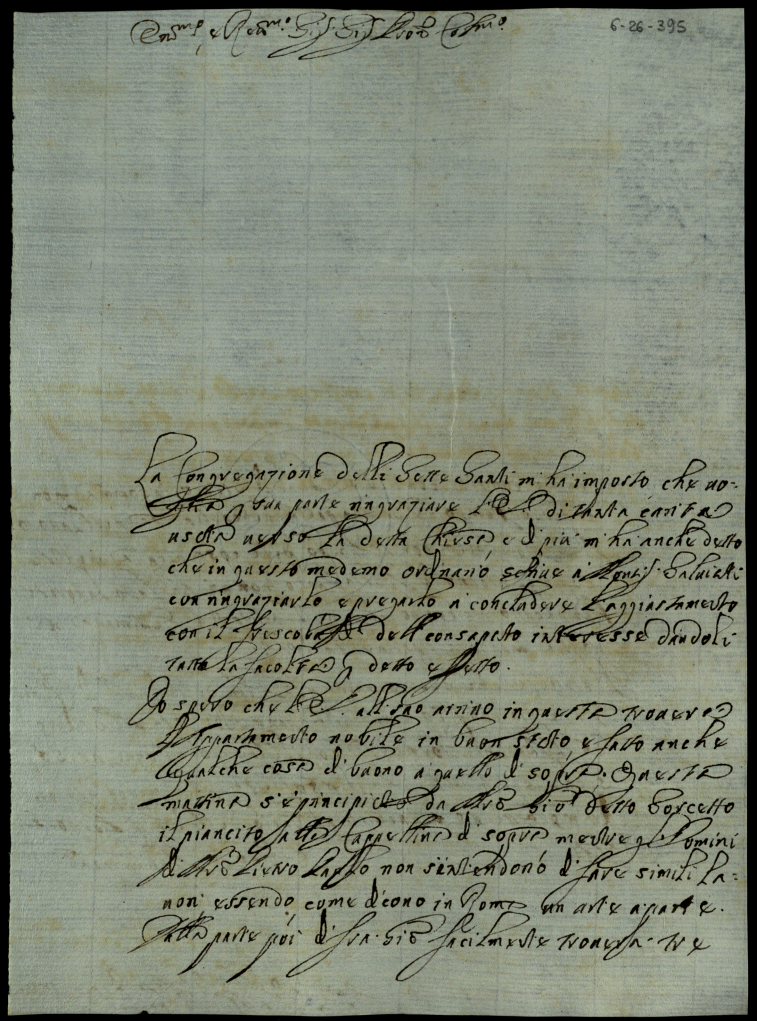 6-26-395
Em.mo e Rev.mo Sig. Sig. Col.mo
La Congregazione delli Sette Santi m'ha imposto che vo-
glia sua parte ringraziare di tanta carità
usata verso la detta Chiesa e di più m'ha anche detto
che in questo medemo ordinario scriva a Mons. Salviati
con ringraziarlo e pregarlo a concludere l'aggiustamento
con il dell consaputo interesse dandoli
tutta la facoltà detto e
Io spero che all suo arrivo in questa troverà
l'Appartamento nobile in buon stato e fatto anche
qualche cosa di buono a quello di sopra. Questa
mattina s'è principiato da Gio detto
il piancito Cappellina di sopra mentre gl'Omini
di Pietro Paolo non s'intendono di fare simili la-
vori essendo come dicono in Roma un arte a parte.
Dalla parte poi di fra Gio facilmente troverà tre